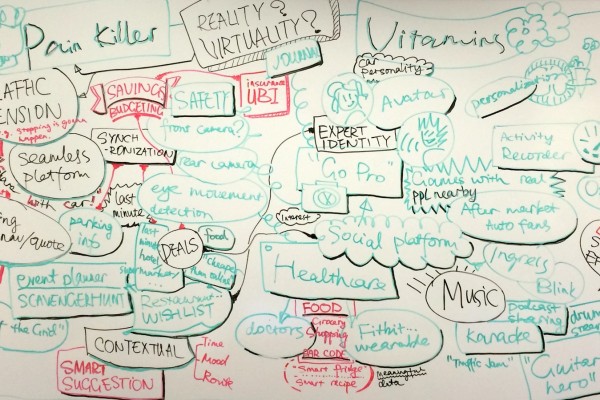 Pain Killer
REALITY?
VIRTUALITY?
JOURNAL
Vitamins
car
personality
Avatar
personalization
TRAFFIC
TENSION
e.g. stopping is gonna
happen.
SAVINGS
BUDGETING
SAFETY
insurance
UBI
SYNCH
-RONIZATION
camera?
rear camera
EXPERT
IDENTITY
"Go Pro"
Activity
Recorder
Seamless
platform
with car!
last
minute
eye movement
detection
Games with real
ppl nearby
After market
Auto fans
parking
info
nav/quote
last
minute
hotel
supermarket
DEALS
food
"Cheaper
than online"
Interest
Social platform
Ingress
Blink
event planner
SCAVENGERHUNT
Restaurant
WISHLIST
Healthcare
MUSIC
podcast
sharing
the Grid"
CONTEXTUAL
Time
Mood
Route
SMART
SUGGESTION
doctors
FOOD
Grocery
Shopping
BAR CODE
smart fridge
smart recipe
Fitbit...
wearable
meaningful
data
Karaoke
"Traffic Jam"
"Guitar
hero"